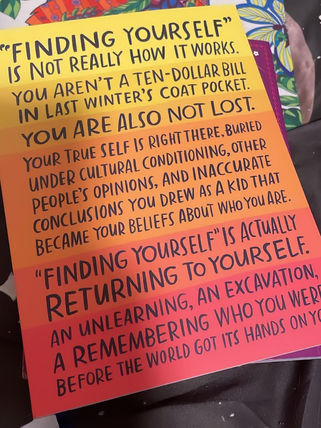 "FINDING YOURSELF"
IS NOT REALLY HOW IT WORKS.
YOU AREN'T A TEN-DOLLAR BILL
IN LAST WINTER'S COAT POCKET.
YOU ARE ALSO NOT LOST.
YOUR TRUE SELF IS RIGHT THERE, BURIED
UNDER CULTURAL CONDITIONING, OTHER
PEOPLE'S OPINIONS, AND INACCURATE
CONCLUSIONS YOU DREW AS A KID THAT
BECAME YOUR BELIEFS ABOUT WHO YOU ARE.
"FINDING YOURSELF" IS ACTUALLY
RETURNING TO YOURSELF.
AN UNLEARNING, AN EXCAVATION,
A REMEMBERING WHO YOU WERE
BEFORE THE WORLD GOT ITS HANDS ON